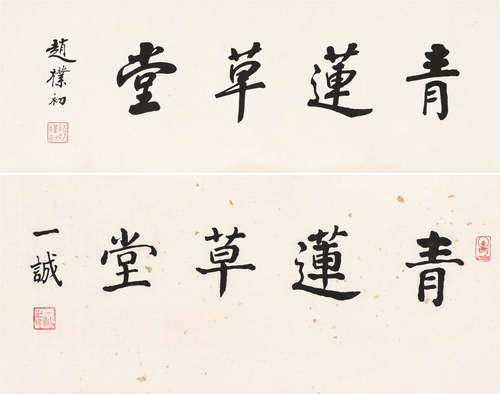 青蓮草堂
趙樸初
青蓮草堂
一誠